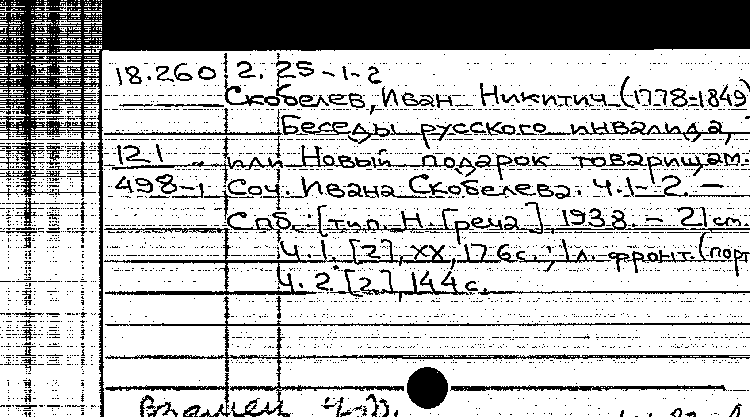 18.260 2. 25-1-2
Скобелев, Иван Никитич (1778-1849)
Беседы русского инвалида,
121 или Новый подарок товарищам.
498-1 Соч. Ивана Скобелева. Ч.1-2. -
Спб. [тип. Н. Греча], 1938. - 21 см.
Ч.1. [2], XX, 176с.; 1л. фронт. (порт
Ч.2. [2], 144с.
Взамен